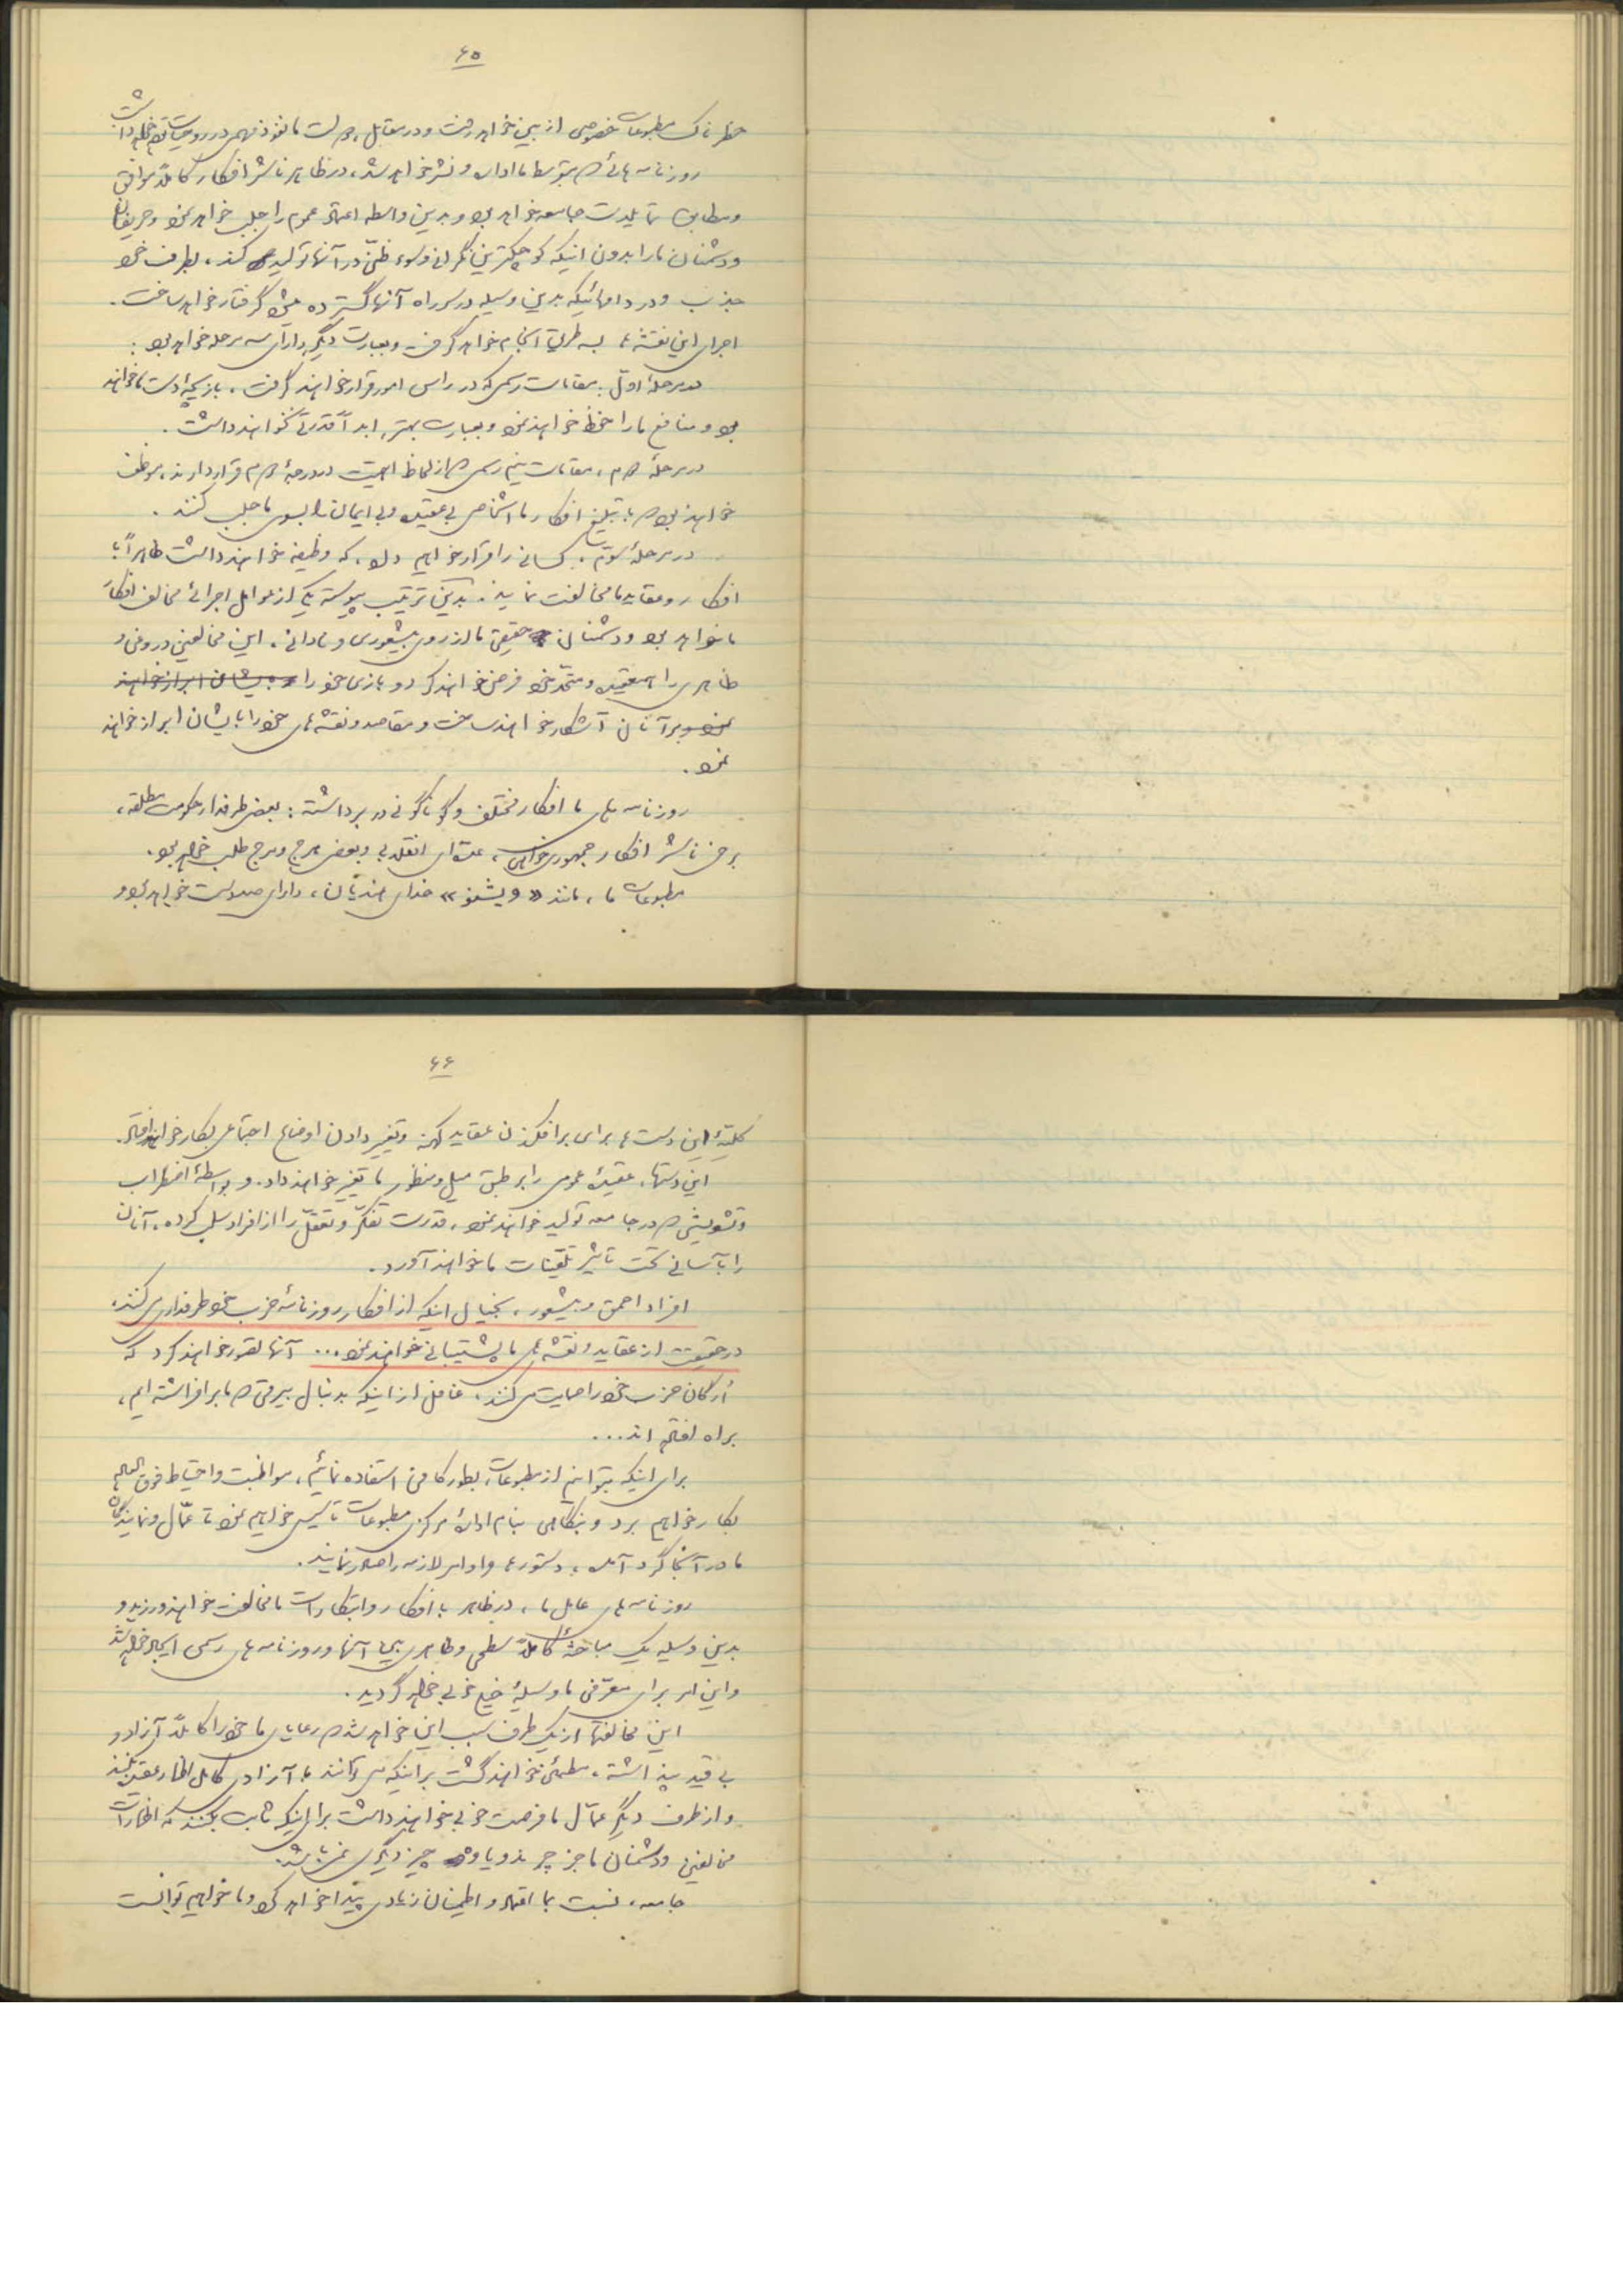 ۶۵
خطرناک مطبوعات خصوصی از بین خواهد رفت و در مقابل، دولت ما نفوذ مهمی در روحیات مردم خواهد داشت
روزنامه هائیکه بتوسط ما اداره و نشر خواهد شد، در ظاهر ناشر افکار کاملاً موافق
و مطابق تمایلات جامعه خواهد بود و بدین واسطه اعتماد عموم را جلب خواهد نمود و حریفان
و دشمنان ما را بدون اینکه کوچکترین نگرانی و سوء ظنّی در آنها تولید کند، بطرف خود
جذب و در دامهائیکه بدین وسیله در سر راه آنها گسترده میشود گرفتار خواهد ساخت.
اجرای این نقشه ها بسه طریق انجام خواهد گرفت و بعبارت دیگر دارای سه مرحله خواهد بود:
در مرحلهٔ اوّل، مقامات رسمی که در رأس امور قرار خواهند گرفت، بازیچهٔ دست ما خواهند
بود و منافع ما را حفظ خواهند نمود و بعبارت بهتر، ابداً قدرتی نخواهند داشت.
در مرحلهٔ دوم، مقامات نیم رسمی که از لحاظ اهمیت در درجهٔ دوم قرار دارند، موظف
خواهند بود که با تبلیغ افکار ما اشخاص بی عقیده و بی ایمان را بسوی ما جلب کنند.
در مرحلهٔ سوّم، کسانی را قرار خواهیم داد، که وظیفه خواهند داشت ظاهراً با
افکار و عقاید ما مخالفت نمایند. بدین ترتیب پیوسته یکی از عوامل اجرائی مخالف افکار
ما خواهد بود و دشمنان حقیقی ما از روی بیشعوری و نادانی، این مخالفین دروغی و
ظاهری را همعقیده و متّحد خود فرض خواهند کرد و بازی خود را و بایشان ابراز خواهند
نمود بر آنان آشکار خواهند ساخت و مقاصد و نقشه های خود را بایشان ابراز خواهند
نمود.
روزنامه های ما افکار مختلف و گوناگونی در بر داشته: بعضی طرفدار حکومت مطلقه،
برخی ناشر افکار جمهوری خواهی، عده‌ای انقلابی و بعضی هرج و مرج طلب خواهد بود.
مطبوعات ما، مانند «ویشنو» خدای هندیان، دارای صد دست خواهد بود و
۶۶
کلیّهٔ این دست ها برای برافکندن عقاید کهنه و تغییر دادن اوضاع اجتماعی بکار خواهد افتاد.
این دستها، عقیدهٔ عمومی را بر طبق میل و منظور ما تغییر خواهند داد. و بواسطهٔ اضطراب
و تشویشی که در جامعه تولید خواهند نمود، قدرت تفکّر و تعقّل را از افراد سلب کرده، آنان
را بآسانی تحت تأثیر تلقینات ما خواهند آورد.
افراد احمق و بیشعور، بخیال اینکه از افکار روزنامهٔ حزب خود طرفداری میکنند،
در حقیقت از عقاید و نقشه های ما پشتیبانی خواهند نمود... آنها تصور خواهند کرد که
ارگان حزب خود را حمایت می کنند، غافل از اینکه بدنبال بیرقی که ما برافراشته ایم،
براه افتاده اند...
برای اینکه بتوانیم از مطبوعات، بطور کافی استفاده نمائیم، مواظبت و احتیاط فوق العاده
بکار خواهیم برد و بنگاهی بنام ادارهٔ مرکزی مطبوعات تأسیس خواهیم نمود تا عمّال و نمایندگان
ما در آنجا گرد آمده، دستورها و اوامر لازمه را صادر نمایند.
روزنامه های عامل ما، در ظاهر با افکار و ابتکارات ما مخالفت خواهند ورزید و
بدین وسیله یک مباحثهٔ کاملاً سطحی و ظاهری میان آنها و روزنامه های رسمی ایجاد خواهد شد
و این امر برای معرّفی ما وسیلهٔ خیلی خوبی خواهد گردید.
این مخالفتها از یک طرف سبب این خواهد شد که رعایای ما خود را کاملاً آزاد و
بی قید پنداشته، مطمئن خواهند گشت بر اینکه می توانند با آزادی کامل اظهار عقیده بکنند
و از طرف دیگر عمّال ما فرصت خوبی خواهند داشت برای اینکه ثابت بکنند که اظهارات
مخالفین و دشمنان ما جز چرند و یاوه چیز دیگری نمی باشد.
جامعه، نسبت بما اعتماد و اطمینان زیادی پیدا خواهد کرد و ما خواهیم توانست